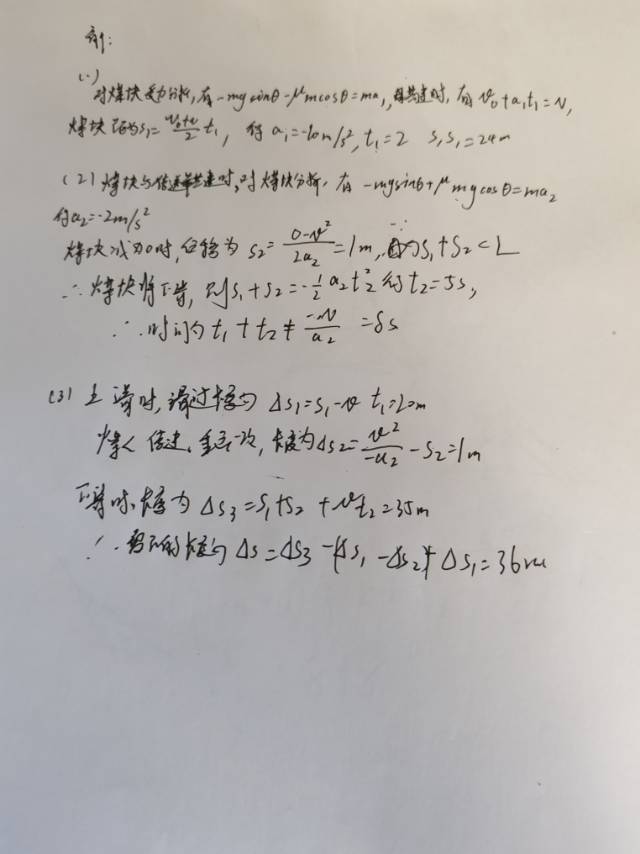 解:
(1)
对煤块受力分析,有 -mgsinθ-μmcosθ=ma₁,共速时,有 v₀+a₁t₁=v,
煤块位移为s₁=\frac{v₀+v}{2}t₁, 得 a₁=-10m/s², t₁=2 s, s₁=24m
(2) 煤块与传送带共速时,对煤块分析,有 -mgsinθ+μmgcosθ=ma₂
得a₂=-2m/s²
煤块减为0时,位移为 s₂=\frac{0-v²}{2a₂}=1m, 因为s₁+s₂<L
∴煤块将下滑, 则s₁+s₂=-\frac{1}{2}a₂t₂² 得t₂=5s,
∴时间为 t₁+t₂+\frac{-v}{a₂}=8s
(3) 上滑时, Δs₁=s₁-v t₁=20m
长度为Δs₂=\frac{v²}{-a₂}-s₂=1m
下滑时,长度为 Δs₃=s₁+s₂+vt₂=35m
∴ 长度为 Δs=Δs₃-(Δs₁-Δs₂)+Δs₁=36m